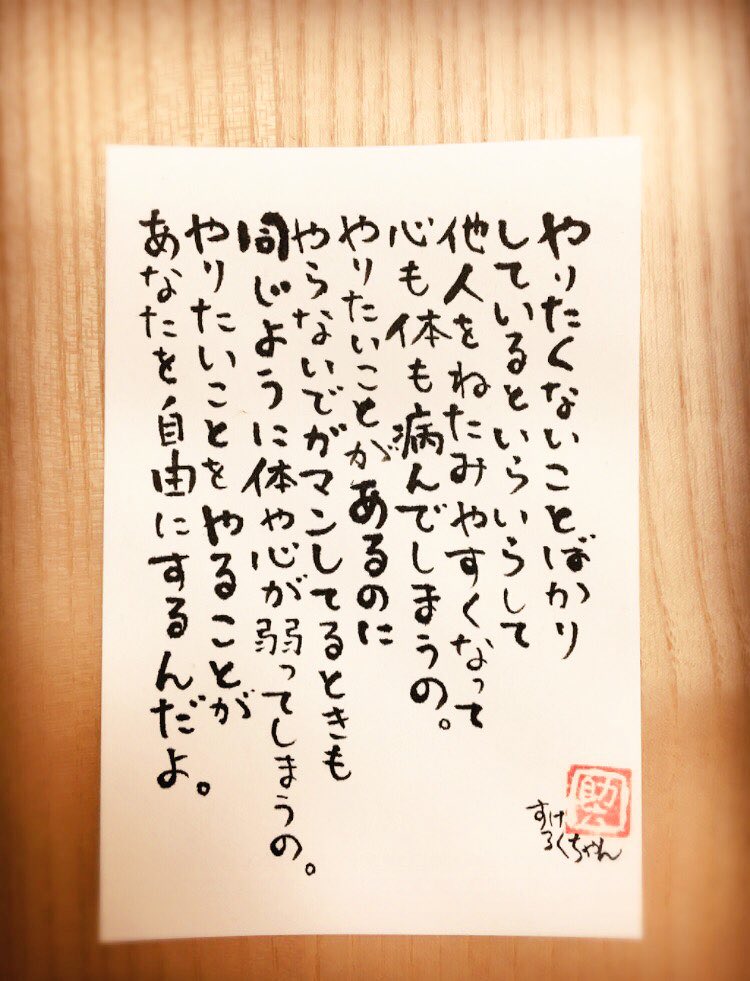 やりたくないことばかり
しているといらいらして
他人をねたみやすくなって
心も体も病んでしまうの。
やりたいことがあるのに
やらないでガマンしてるときも
同じように体や心が弱ってしまうの。
やりたいことをやることが
あなたを自由にするんだよ。
助六
すけ
ろくちゃん